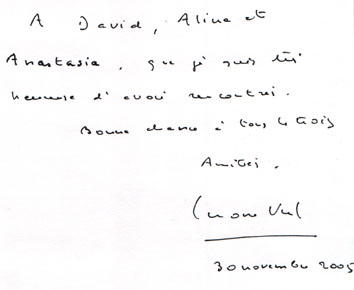 A David, Alina et
Anastasia, que j'ai suis très
heureuse d'avoir rencontrés.
Bonne chance à tous les trois
Amitiés.
30 novembre 2005